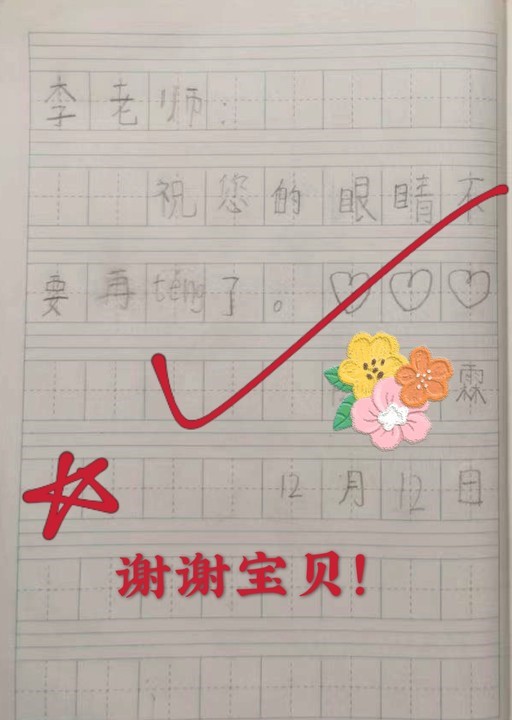 李老师：
祝您的眼睛不
要再téng了。
霖
12月12日
谢谢宝贝！